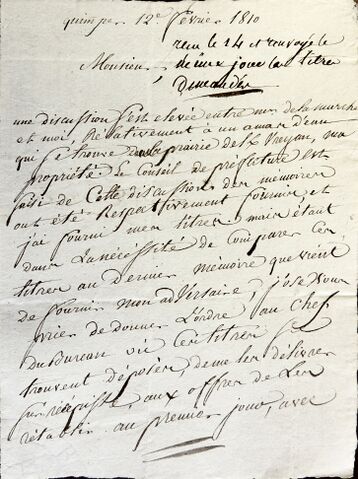 quimper 12e février 1810
recu le 14 et renvoyé le
même jour les titres
Monsieur
demandés
une discussion s'est elevée entre mr de la marche
et moi, Relativement à un amas d'eau
qui se trouve dans la prairie de ma
propriété le Conseil de préfecture est
saisi de Cette discussion des mémoires
ont été Respectivement fournis et
j'ai fourni mes titres, mais étant
dans La nécessité de Comparer les
titres au dernier mémoire que vient
de fournir mon adversaire, j'ose vous
prier de donner L'ordre au Chef
du Bureau où Ces titres se
trouvent déposés, de me les délivrer
sur récépissé, aux offres de Les
rétablir au premier jour, avec